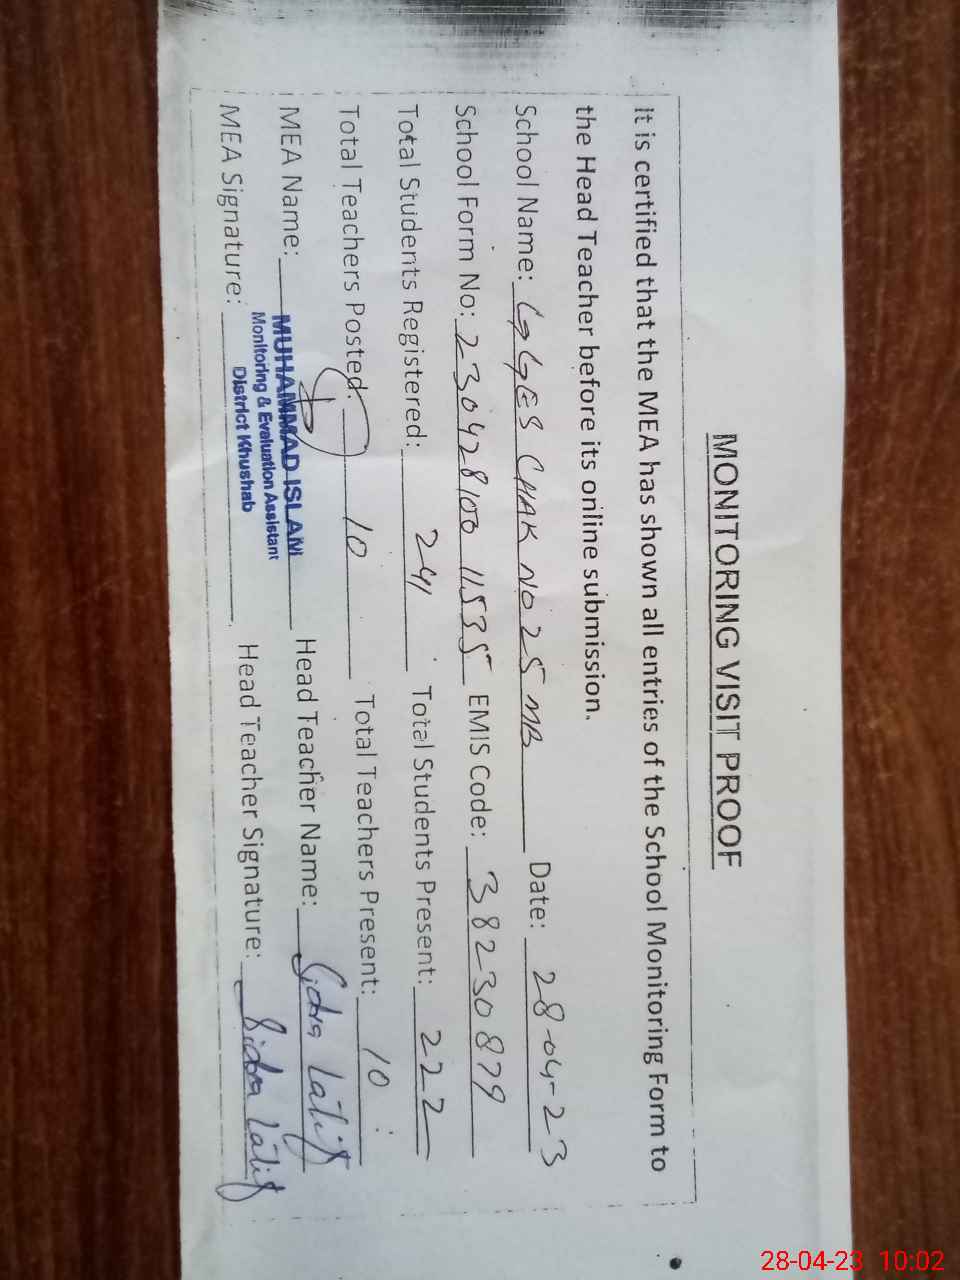 MONITORING VISIT PROOF
It is certified that the MEA has shown all entries of the School Monitoring Form to
the Head Teacher before its online submission.
School Name: GGES CHAK NO 25 MB Date: 28-04-23
School Form No: 23042810011535 EMIS Code: 38230879
Total Students Registered: 241 Total Students Present: 222
Total Teachers Posted: 10 Total Teachers Present: 10
MEA Name: MUHAMMAD ISLAM Head Teacher Name: Sidra Latif
Monitoring & Evaluation Assistant
District Khushab
MEA Signature: Head Teacher Signature: Sidra Latif
28-04-23 10:02